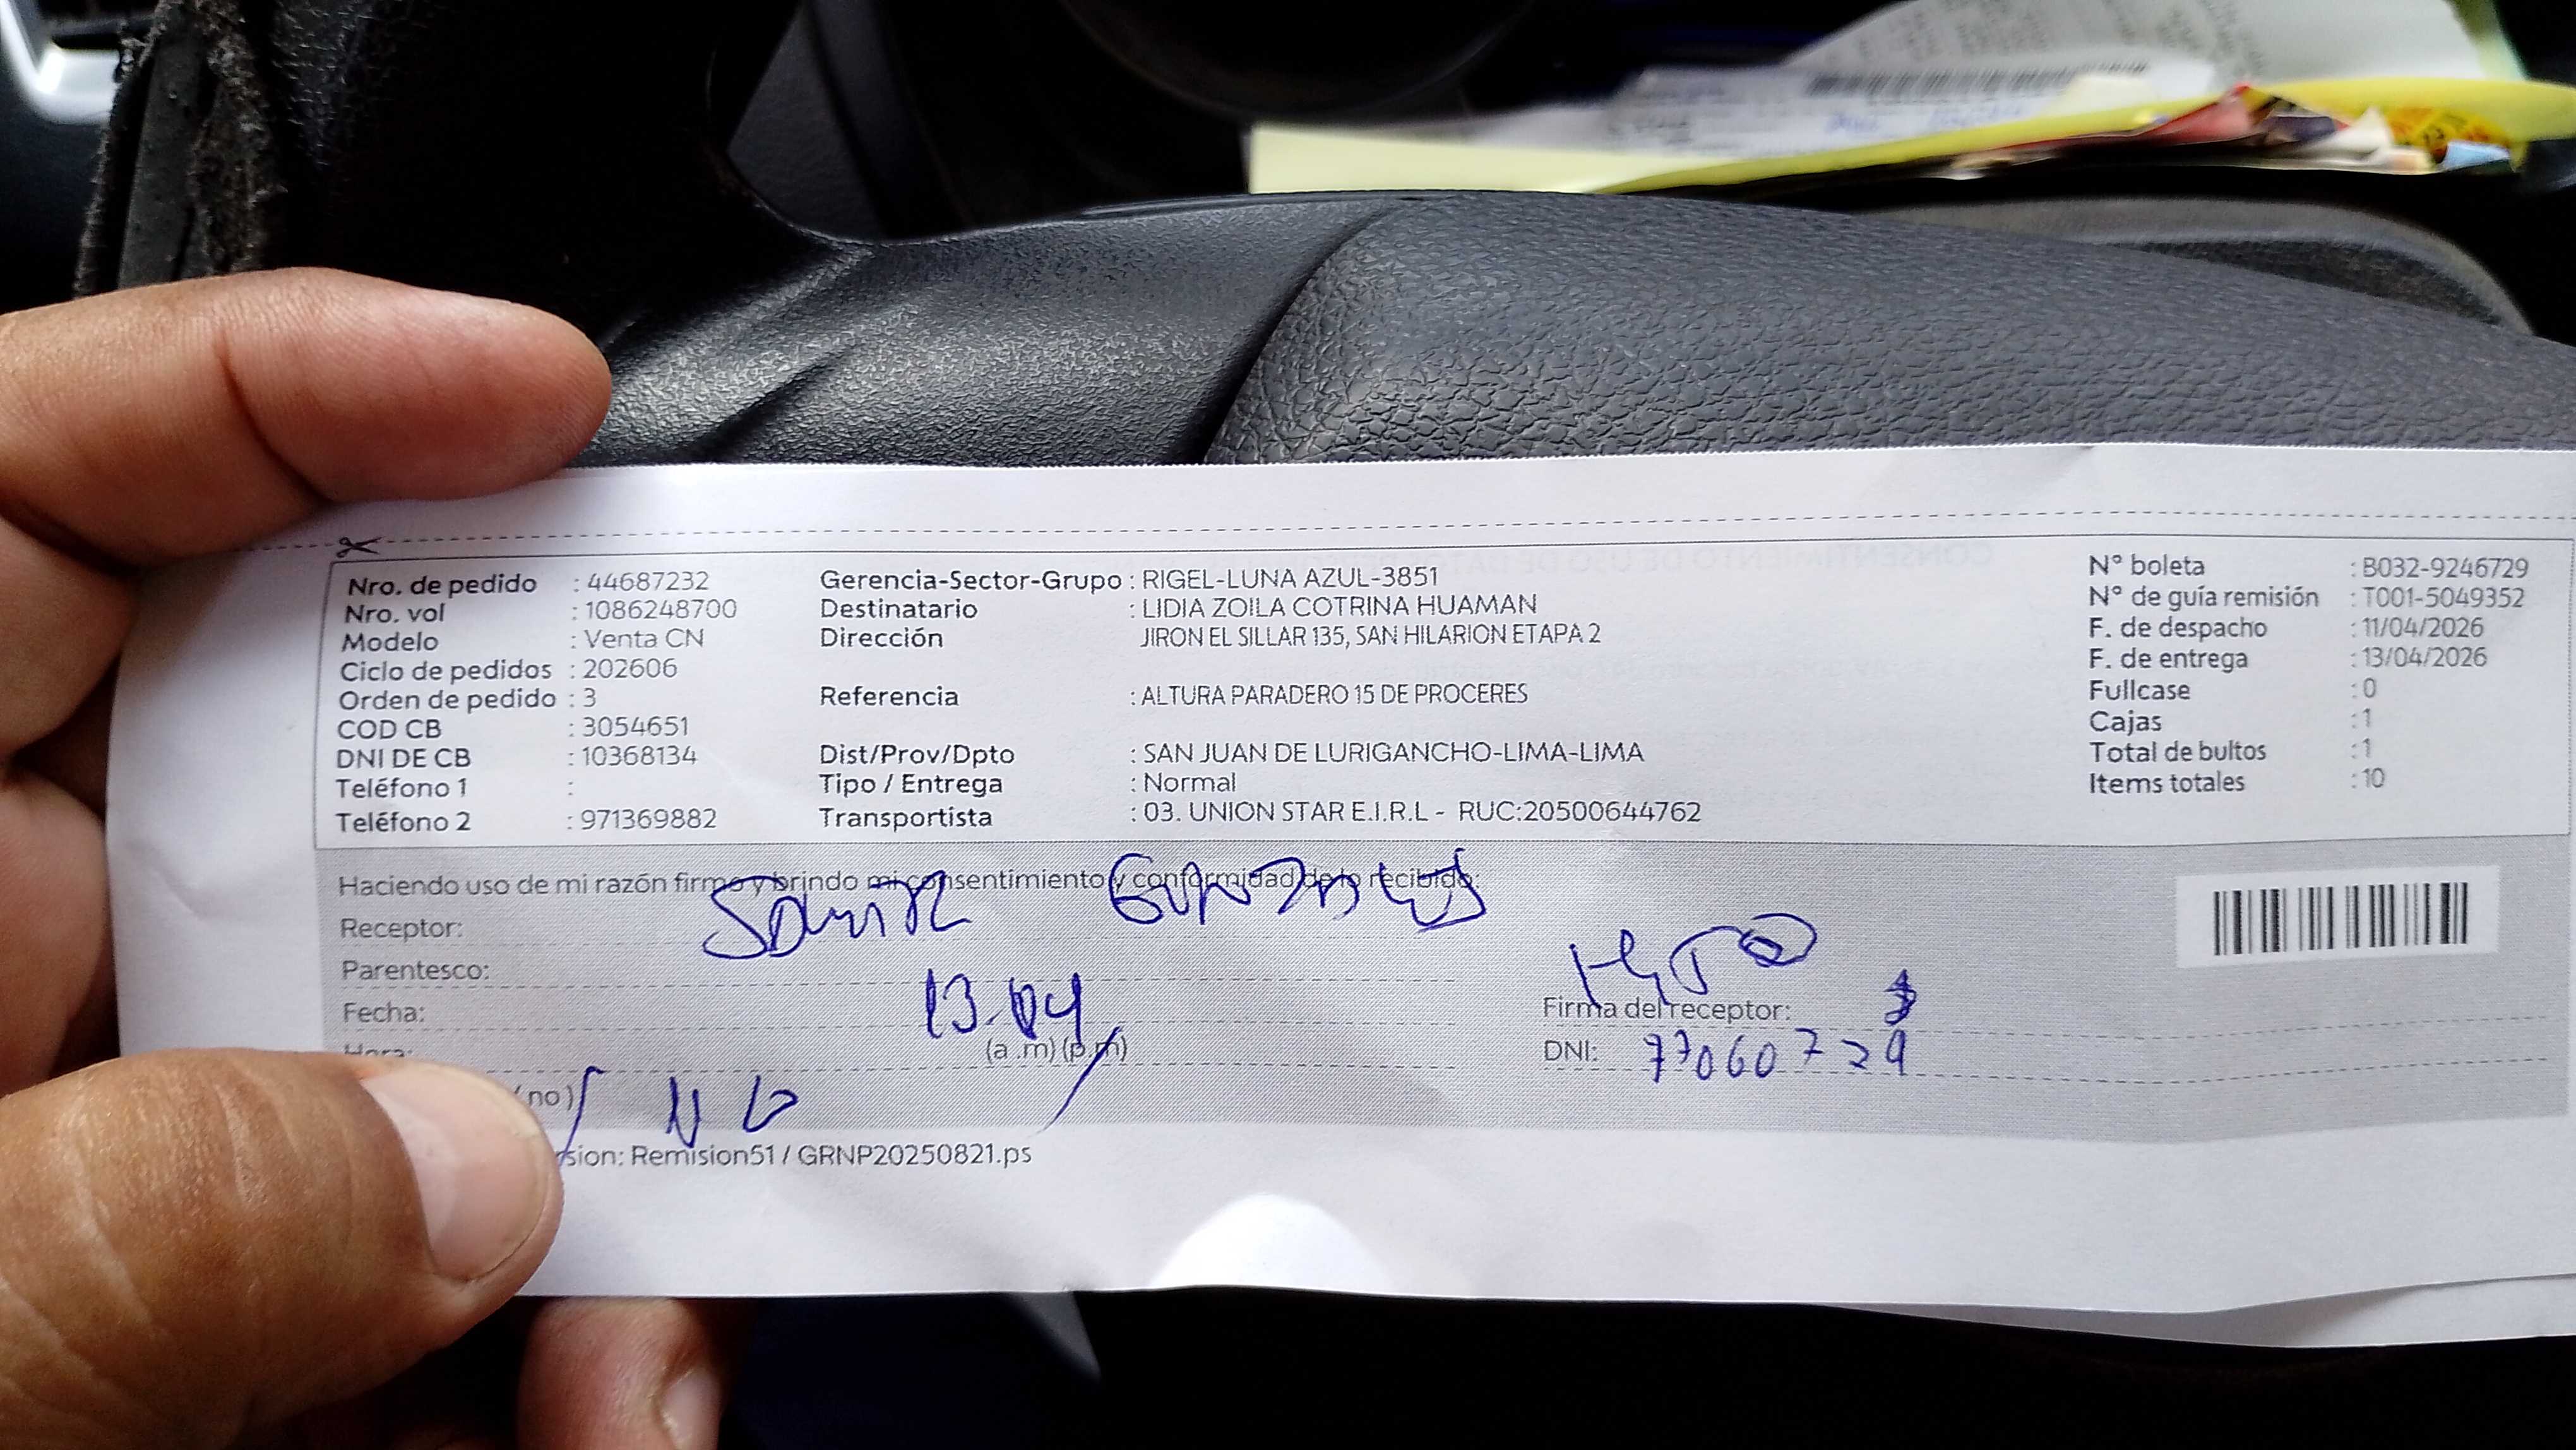 Nro. de pedido : 44687232
Nro. vol : 1086248700
Modelo : Venta CN
Ciclo de pedidos : 202606
Orden de pedido : 3
COD CB : 3054651
DNI DE CB : 10368134
Teléfono 1 :
Teléfono 2 : 971369882
Gerencia-Sector-Grupo : RIGEL-LUNA AZUL-3851
Destinatario : LIDIA ZOILA COTRINA HUAMAN
Dirección JIRON EL SILLAR 135, SAN HILARION ETAPA 2
Referencia : ALTURA PARADERO 15 DE PROCERES
Dist/Prov/Dpto : SAN JUAN DE LURIGANCHO-LIMA-LIMA
Tipo / Entrega : Normal
Transportista : 03. UNION STAR E.I.R.L - RUC:20500644762
N° boleta : B032-9246729
N° de guía remisión : T001-5049352
F. de despacho : 11/04/2026
F. de entrega : 13/04/2026
Fullcase : 0
Cajas : 1
Total de bultos : 1
Items totales : 10
Haciendo uso de mi razón firmo y brindo mi consentimiento y conformidad de lo recibido:
Receptor:
Parentesco:
Fecha: 13.04
Hora: (a.m) (p.m)
no) NO
Firma del receptor:
DNI: 77060729
sion: Remision51 / GRNP20250821.ps